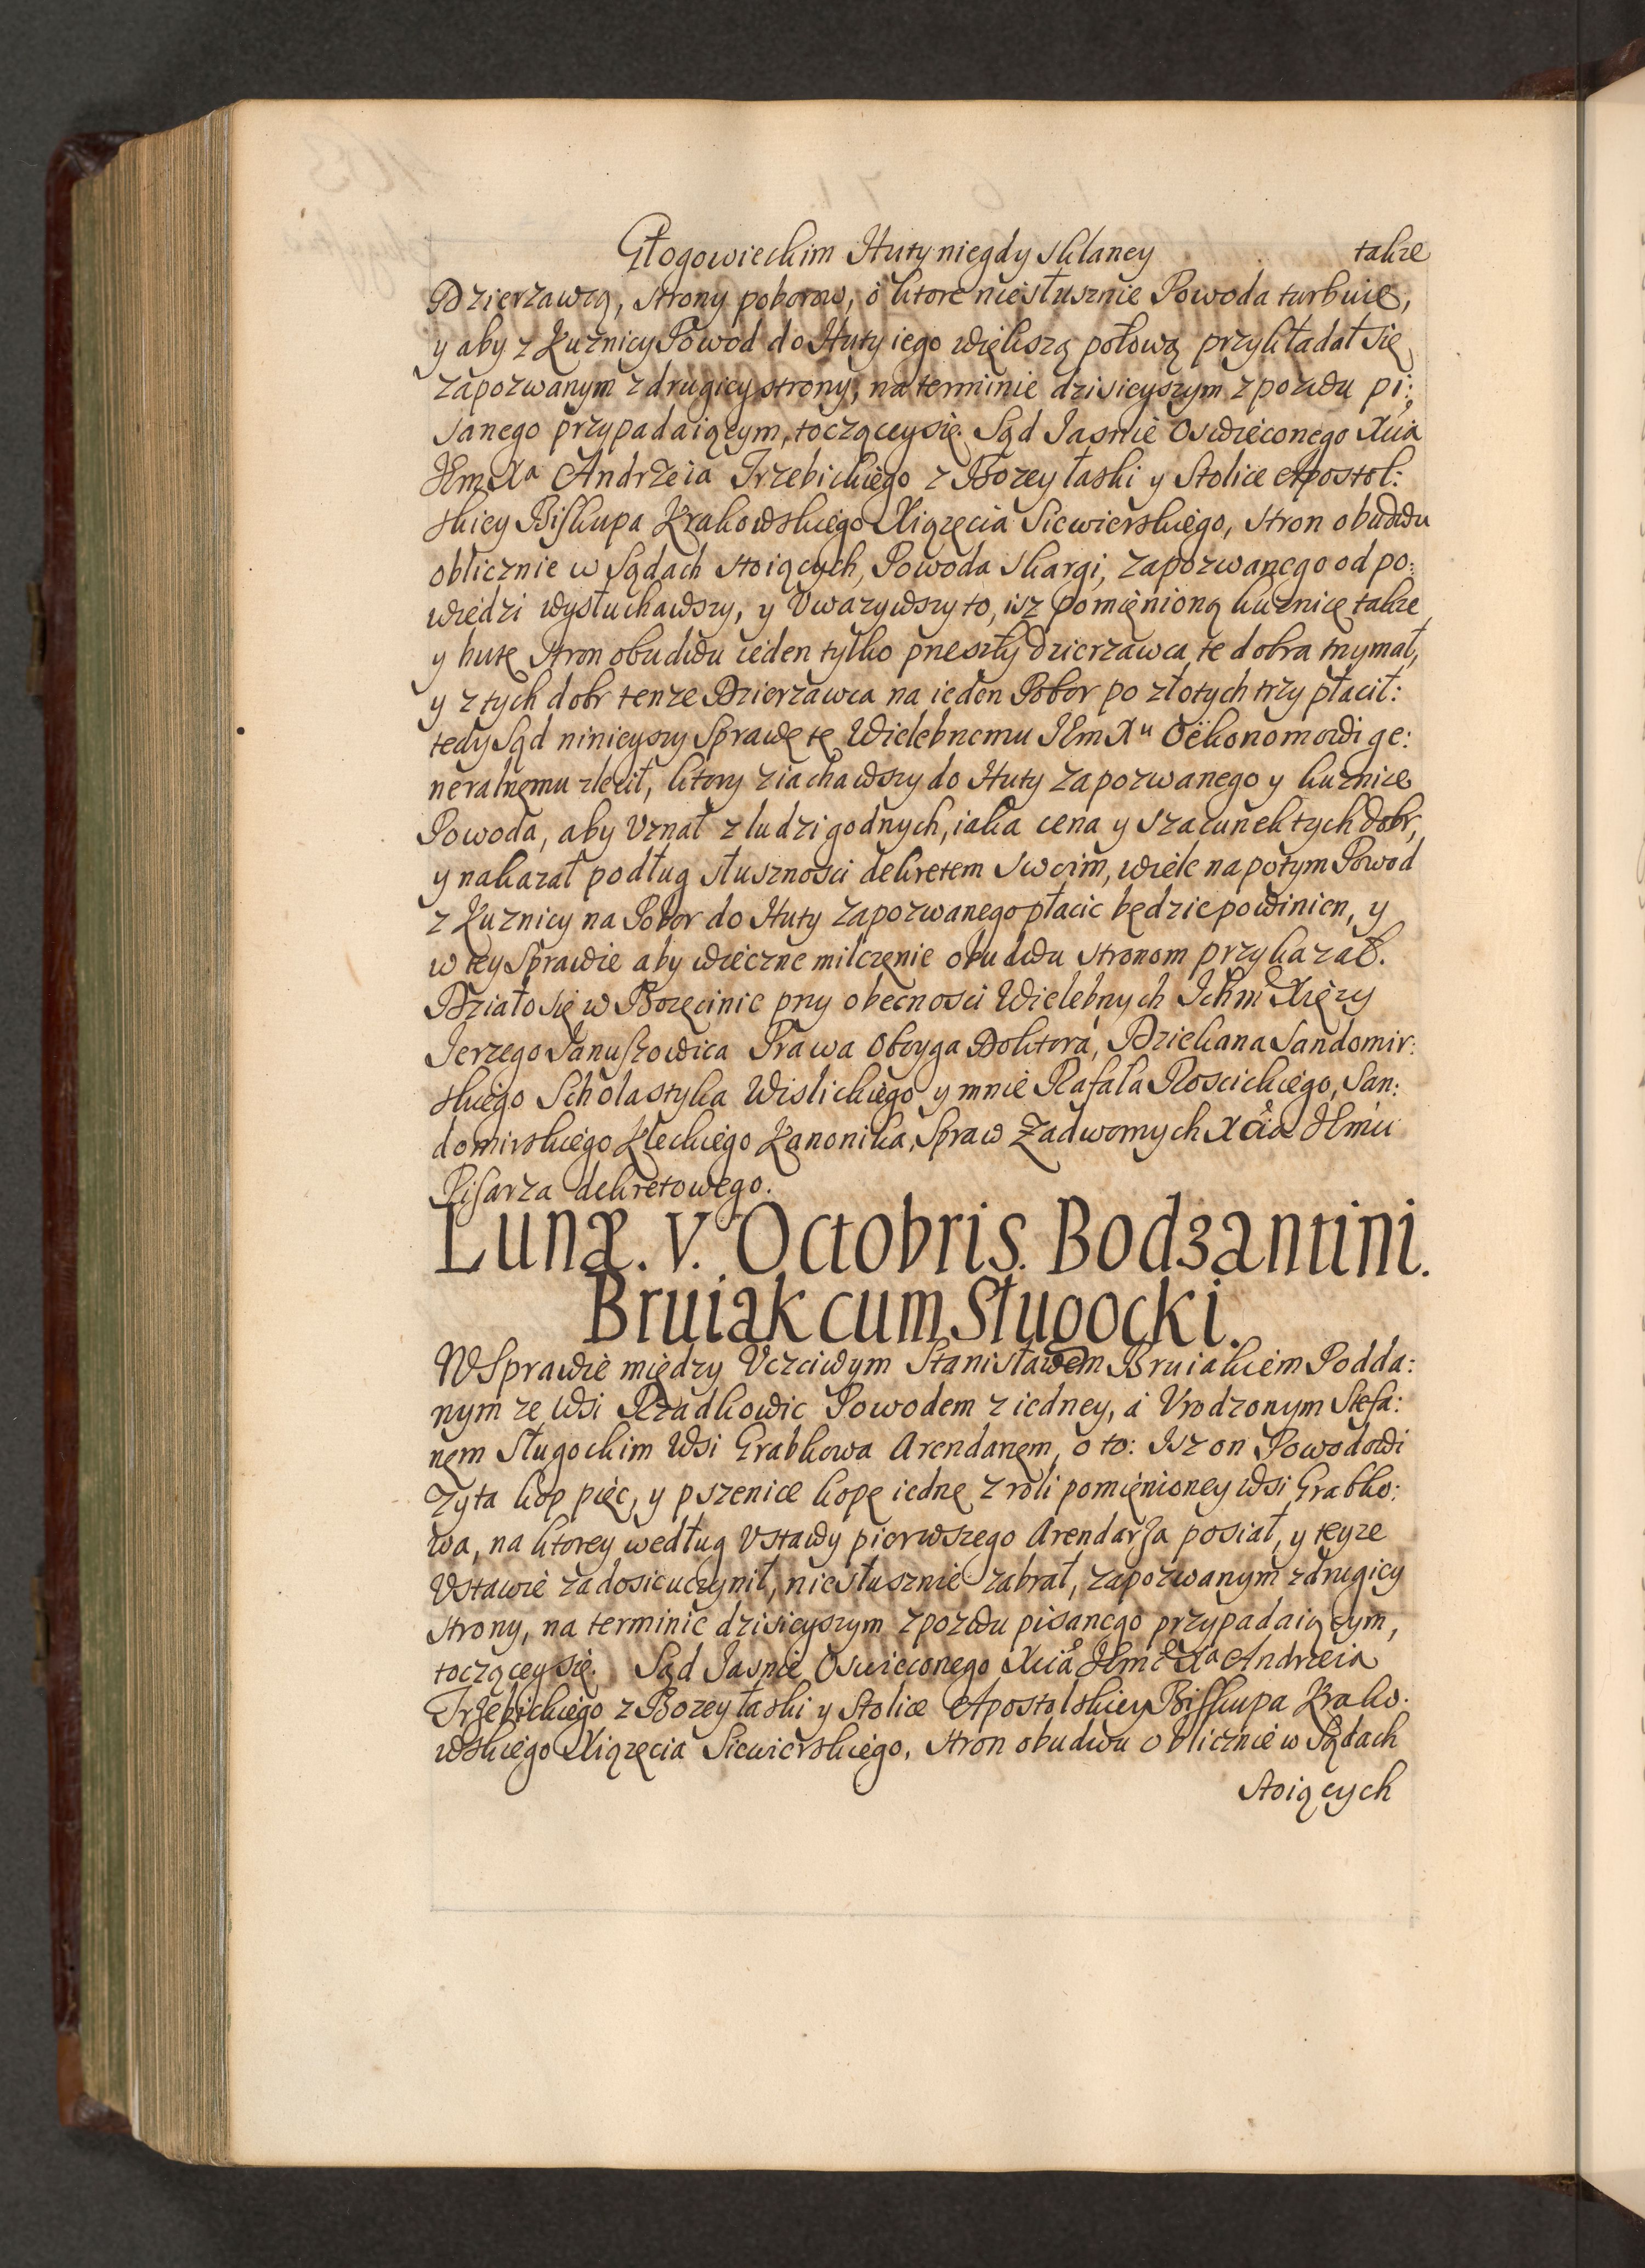 Głogowieckim Huty niegdy sklaney takze
Dzierzawcą, strony poborow, o ktore niesłusznie Powoda turbuie,
y aby z Kuznicy Powod do Huty iego większą połową przykładał się,
zapozwanym z drugiey strony, na terminie dzisieyszym z pozwu pi:
sanego przypadaiącym, toczącey się. Sąd Jasnie Oswieconego Xcia
JEm Xa Andrzeia Trzebickiego z Bozey łaski y Stolice Apostol:
skiey Biskupa Krakowskiego Xiązęcia Siewierskiego, stron obudwu
oblicznie w Sądach stoiących, Powoda skargi, zapozwanego od po:
wiedzi wysłuchawszy, y Vwazywszy to, isz pomięnioną kuznicę takze
y hutę stron obudwu ieden tylko przeszły Dzierzawca te dobra trzymał,
y z tych dobr tenze Dzierzawca na ieden Pobor po złotych trzy płacił:
tedy Sąd ninieyszy Sprawę tę Wielebnemu JEm Xu Oëkonomowi ge:
neralnemu zlecił, ktory ziachawszy do Huty zapozwanego y kuznice
Powoda, aby Vznał z ludzi godnych, iaka cena y szacunek tych dobr,
y nakazał podług słusznosci dekretem swoim, wiele na potym Powod
z Kuznicy na Pobor do Huty zapozwanego płacic będzie powinien, y
w tey Sprawie aby wieczne milczenie obudwu stronom przykazał.
Działo się w Bozęcinie przy obecnosci Wielebnych Ichm Xięzy
Jerzego Januszowica Prawa Oboyga Doktora, Dziekana Sandomir:
skiego Scholastyka Wislickiego y mnie Rafała Roscickiego, San:
domirskiego Kleckiego Kanonika, Spraw Zadwornych Xcia JEmci
Pisarza dekretowego.
Lunæ. V. Octobris. Bodzantini.
Bruiak cum Sługocki.
W Sprawie między Vczciwym Stanisławem Bruiakiem Podda:
nym ze Wsi Rzadkowic Powodem z iedney, a Vrodzonym Stefa:
nem Sługockim Wsi Grabkowa Arendarzem, o to: Isz on Powodowi
zyta kop pięc, y pszenice kopę iednę z roli pomięnioney Wsi Grabko:
wa, na ktorey według Vstawy pierwszego Arendarza posiał, y teyze
Vstawie zadosicuczynił, niesłusznie zabrał, zapozwanym z drugiey
strony, na terminie dzisieyszym z pozwu pisanego przypadaiącym,
toczącey się. Sąd Jasnie Oswieconego Xcia JEmc Xa Andrzeia
Trzebickiego z Bozey łaski y Stolice Apostolskiey Biskupa Krako:
wskiego Xiązęcia Siewierskiego, stron obudwu oblicznie w Sądach
stoiących